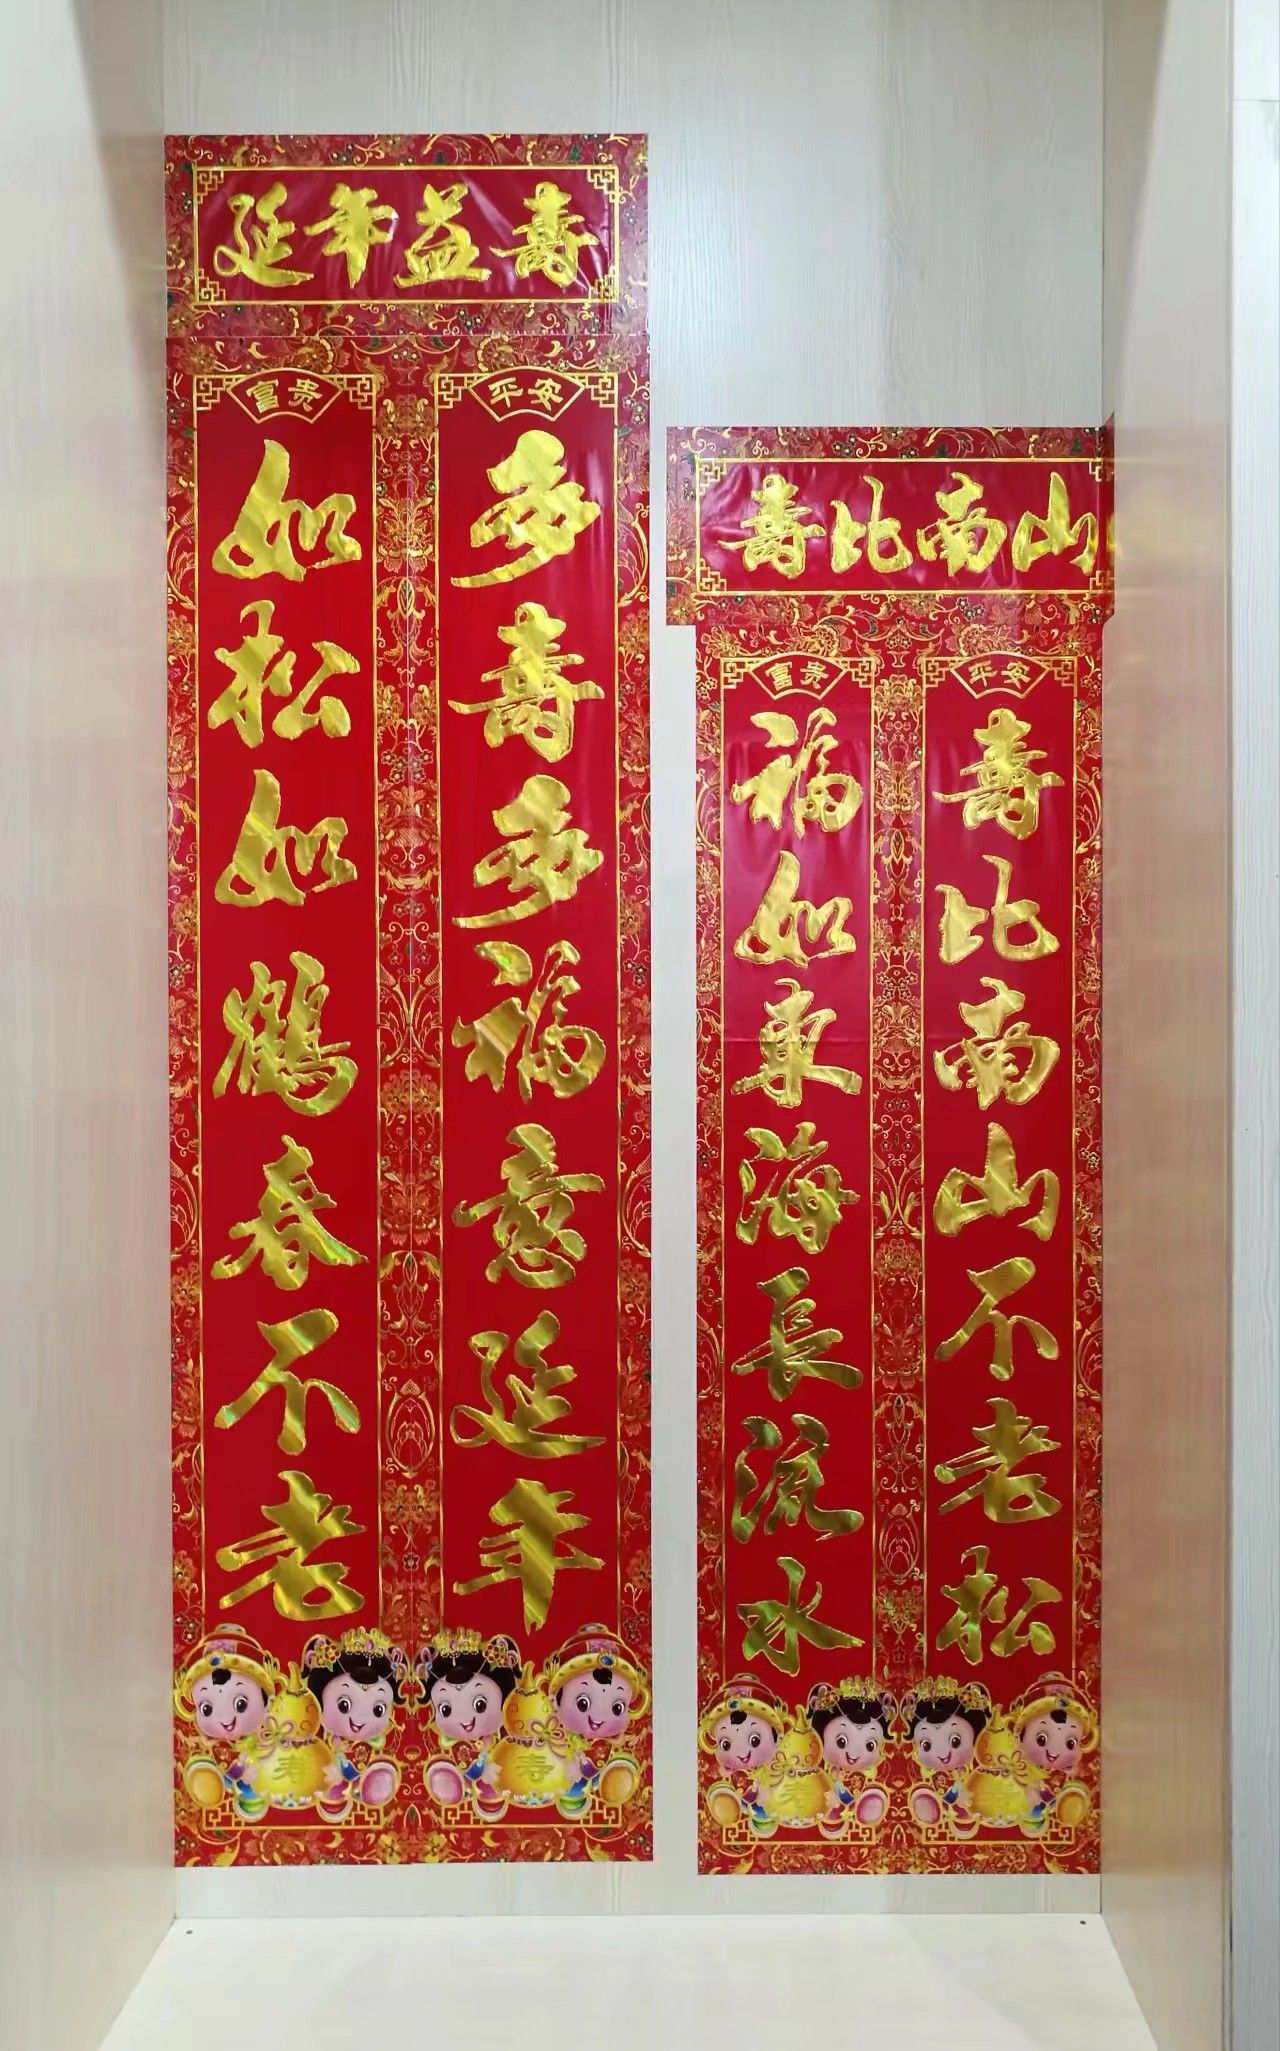 延年益壽
富贵
如松如鶴春不老
平安
多壽多福意延年
寿
寿
壽比南山
富贵
福如东海長流水
平安
壽比南山不老松
寿